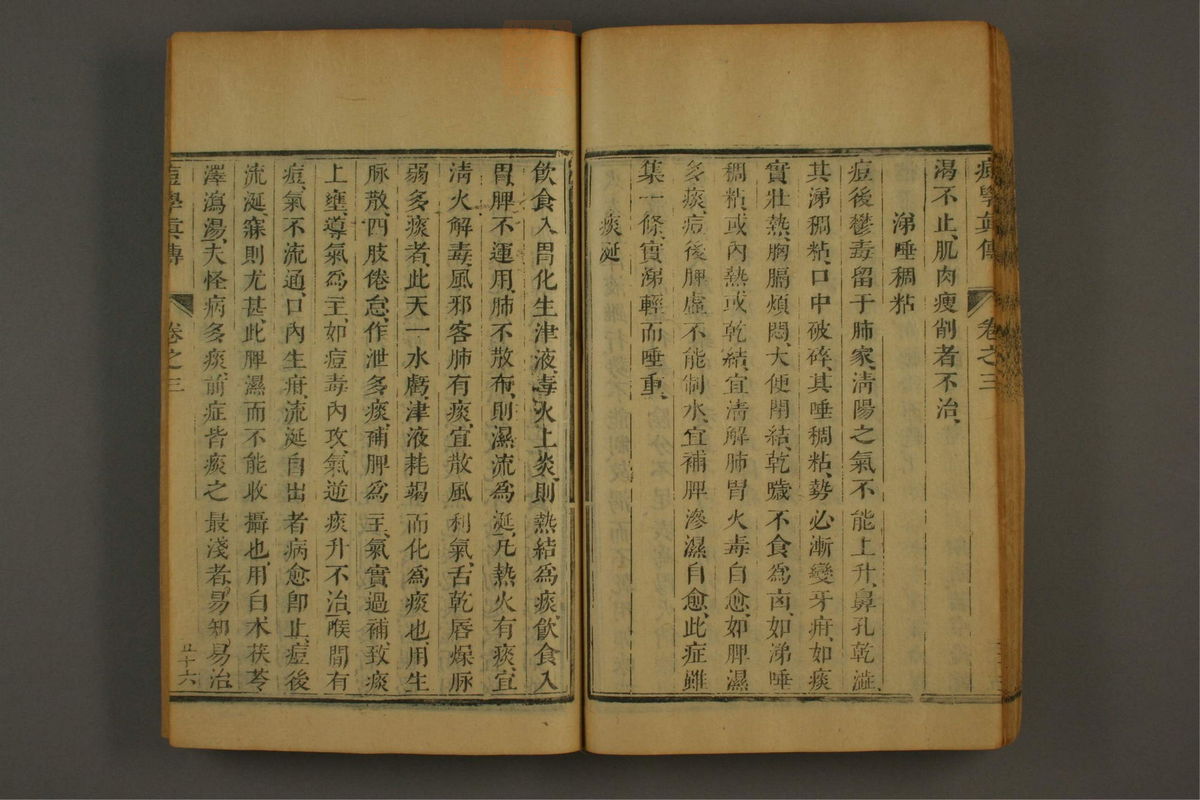 痘學真傳 卷之三
渴不止肌肉瘦削者不治
涕唾稠粘
痘後鬱毒留于肺家清陽之氣不能上升鼻孔乾澁
其涕稠粘口中破碎其唾稠粘勢必漸變牙疳如痰
實壯熱胸膈煩悶大便閉結乾噦不食為凶如涕唾
稠粘或內熱或乾結宜清解肺胃火毒自愈如脾濕
多痰痘後脾虛不能制水宜補脾滲濕自愈此症雖
集一條實涕輕而唾重
痰涎
飲食入胃化生津液毒火上炎則熱結為痰飲食入
胃脾不運用肺不散布則濕流為涎凡熱火有痰宜
清火解毒風邪客肺有痰宜散風利氣舌乾唇燥脉
弱多痰者此天一水虧津液耗竭而化為痰也用生
脉散四肢倦怠作泄多痰補脾為主氣實過補致痰
上壅導氣為主如痘毒內攻氣逆痰升不治喉間有
痘氣不流通口內生疳流涎自出者病愈卽止痘後
流涎寐則尤甚此脾濕而不能收攝也用白朮茯苓
澤瀉湯大怪病多痰前症皆痰之最淺者易知易治
痘學真傳 卷之三 五十六